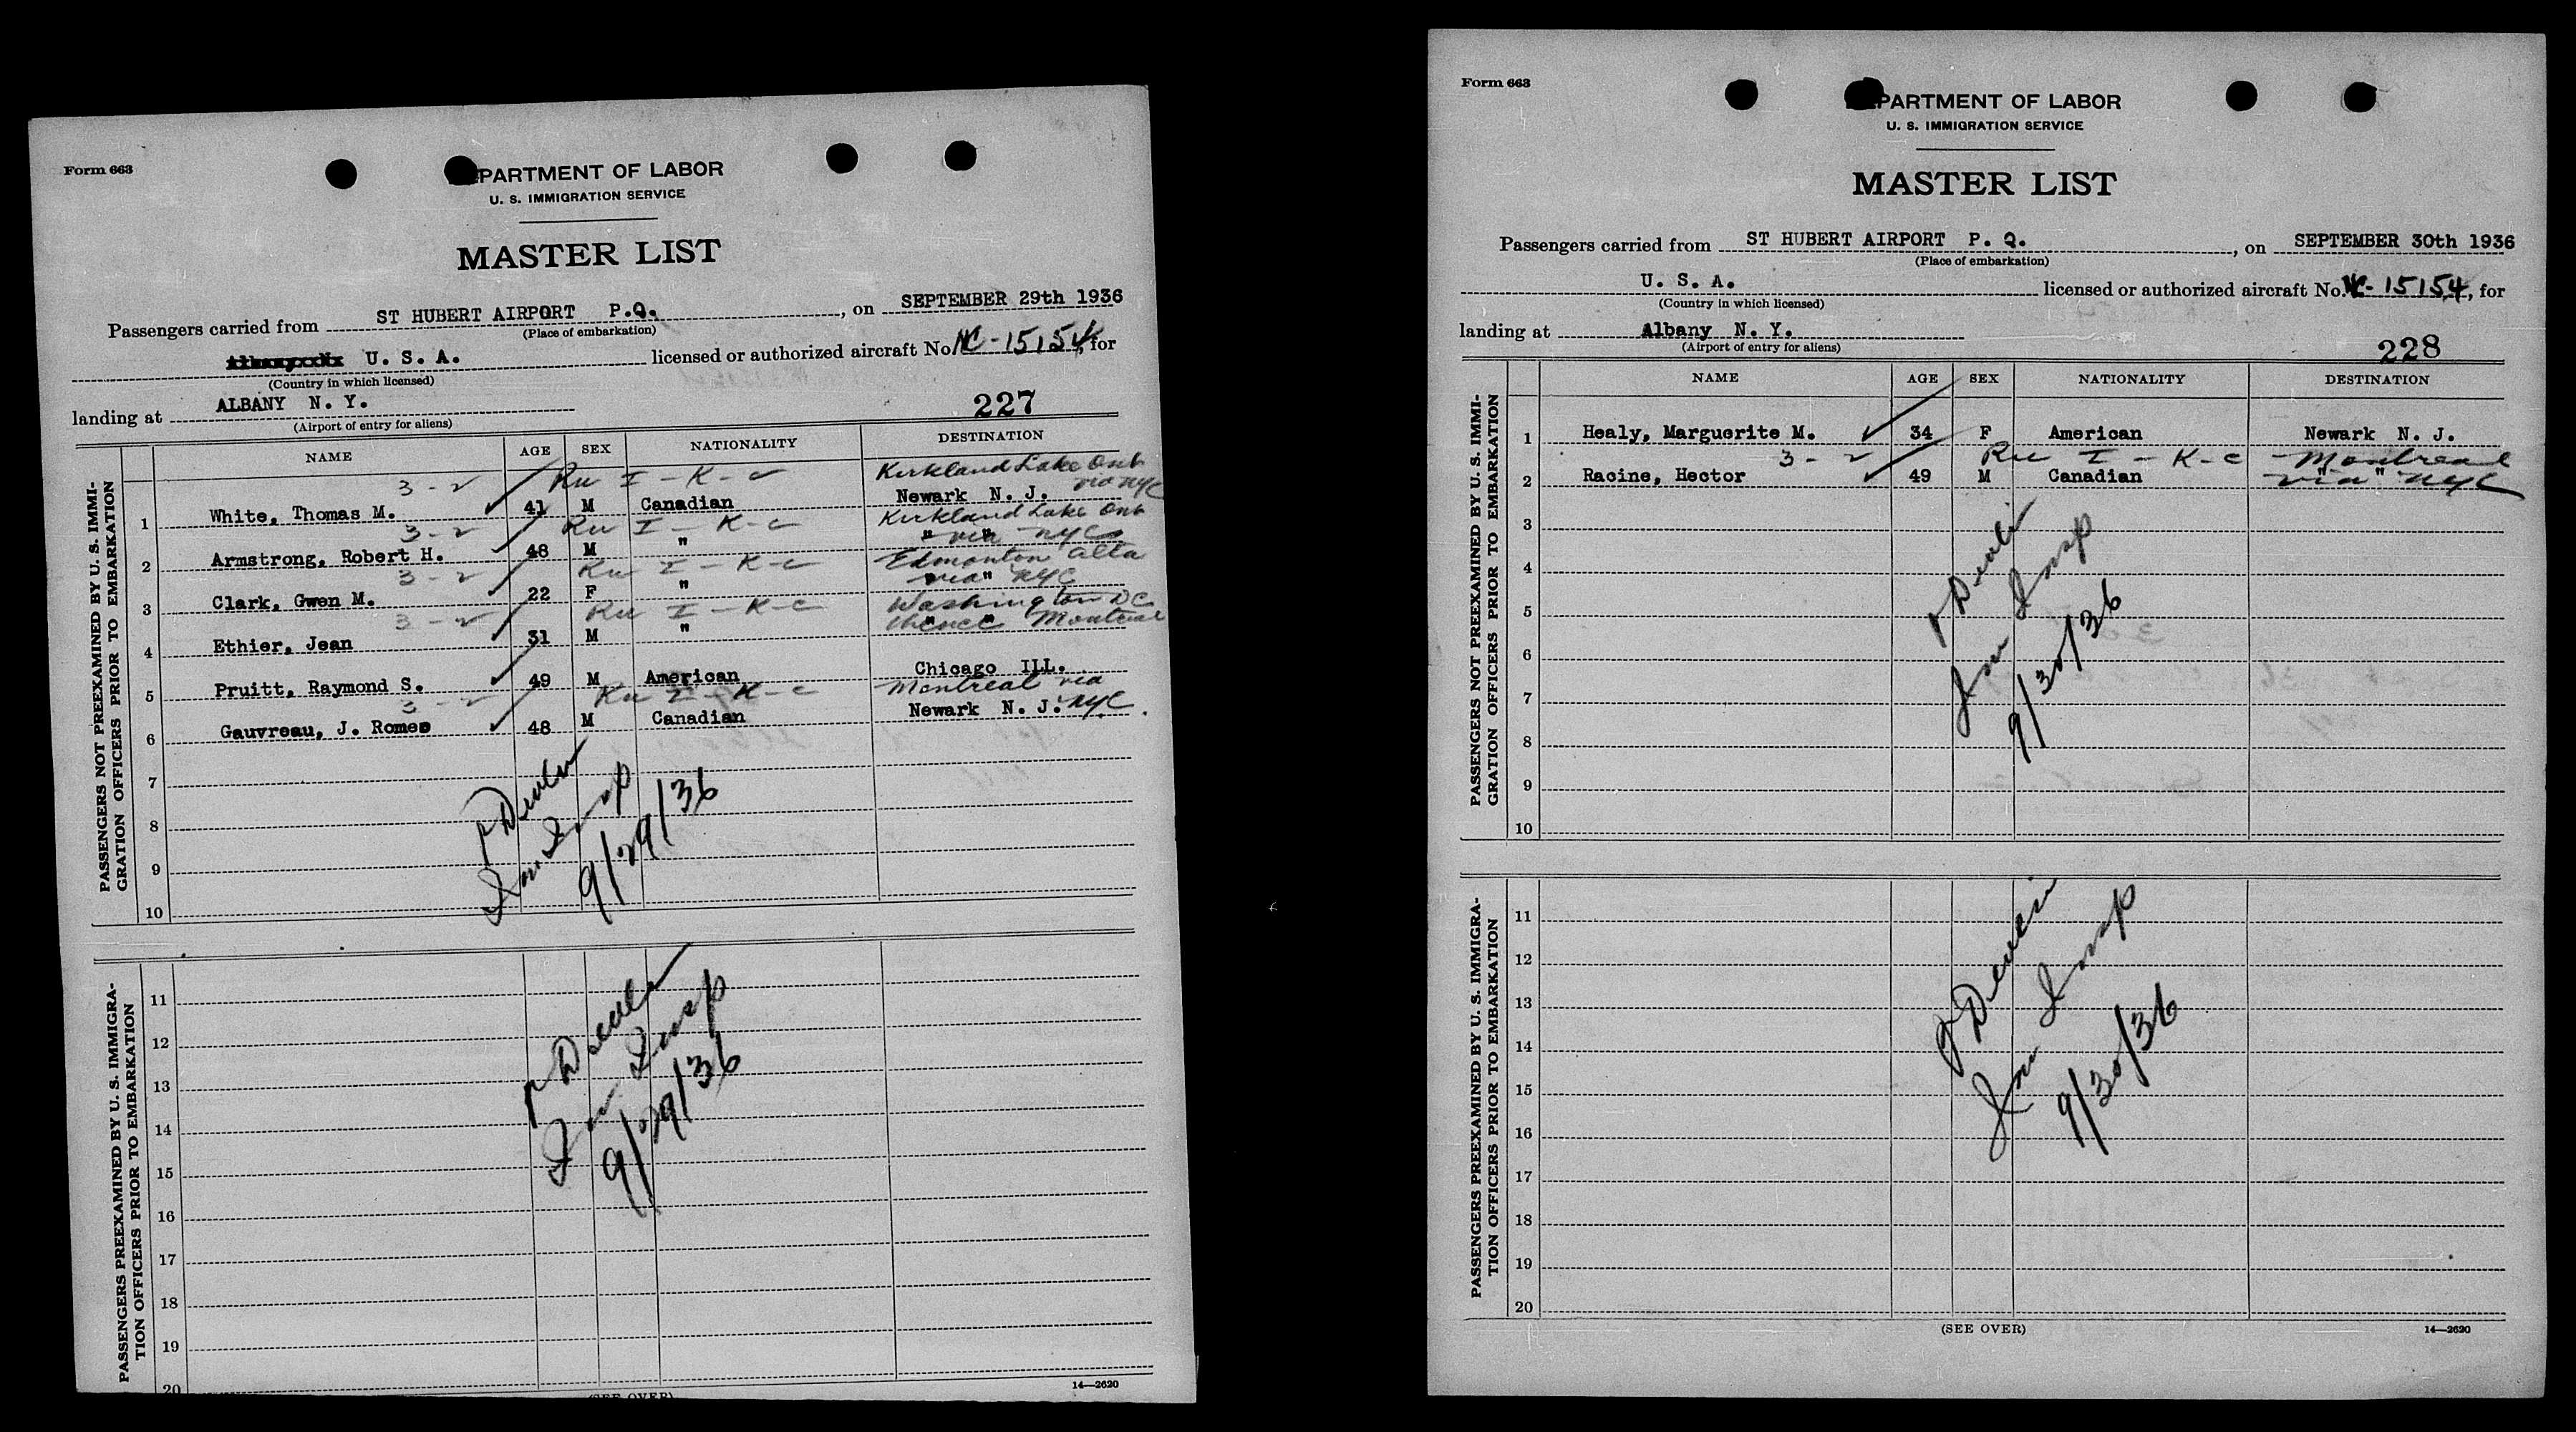 Form 663
PARTMENT OF LABOR
U. S. IMMIGRATION SERVICE
MASTER LIST
Passengers carried from ST HUBERT AIRPORT P.Q., on SEPTEMBER 29th 1936
(Place of embarkation)
U. S. A. licensed or authorized aircraft No. NC-15154, for
(Country in which licensed)
landing at ALBANY N. Y.
(Airport of entry for aliens)
227
NAME AGE SEX NATIONALITY DESTINATION
PASSENGERS NOT PREEXAMINED BY U. S. IMMI-
GRATION OFFICERS PRIOR TO EMBARKATION
3-2 I-K-c Kirkland Lake Ont
1 White, Thomas M. 41 M Canadian Newark N. J. via NYC
3-2 I-K-c Kirkland Lake Ont
2 Armstrong, Robert H. 48 M " " via " NYC
3-2 I-K-c Edmonton Alta
3 Clark, Gwen M. 22 F " via " NYC
3-2 I-K-c Washington DC
4 Ethier, Jean 31 M " " thence " Montreal
5 Pruitt, Raymond S. 49 M American Chicago ILL.
3-2 I-K-c Montreal via
6 Gauvreau, J. Romeo 48 M Canadian Newark N. J. NYC
7
8
9
10
Imm Insp
9/29/36
PASSENGERS PREEXAMINED BY U. S. IMMIGRA-
TION OFFICERS PRIOR TO EMBARKATION
11
12
13
14
15
16
17
18
19
20
Imm Insp
9/29/36
(SEE OVER)
14—2620
Form 663
PARTMENT OF LABOR
U. S. IMMIGRATION SERVICE
MASTER LIST
Passengers carried from ST HUBERT AIRPORT P. Q., on SEPTEMBER 30th 1936
(Place of embarkation)
U. S. A. licensed or authorized aircraft No. NC-15154, for
(Country in which licensed)
landing at Albany N. Y.
(Airport of entry for aliens)
228
NAME AGE SEX NATIONALITY DESTINATION
PASSENGERS NOT PREEXAMINED BY U. S. IMMI-
GRATION OFFICERS PRIOR TO EMBARKATION
1 Healy, Marguerite M. 34 F American Newark N. J.
3-2 I-K-c Montreal
2 Racine, Hector 49 M Canadian via " " NYC
3
4
5
6
7
8
9
10
Imm Insp
9/30/36
PASSENGERS PREEXAMINED BY U. S. IMMIGRA-
TION OFFICERS PRIOR TO EMBARKATION
11
12
13
14
15
16
17
18
19
20
Imm Insp
9/30/36
(SEE OVER)
14—2620